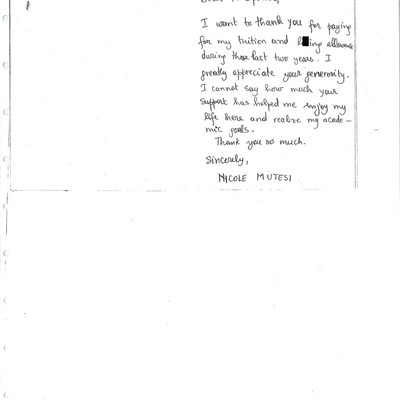 I want to thank you for paying
for my tuition and l■ing allowance
during these last two years. I
greatly appreciate your generosity.
I cannot say how much your
support has helped me enjoy my
life here and realize my acade-
mic goals.
Thank you so much.
Sincerely,
NICOLE MUTESI